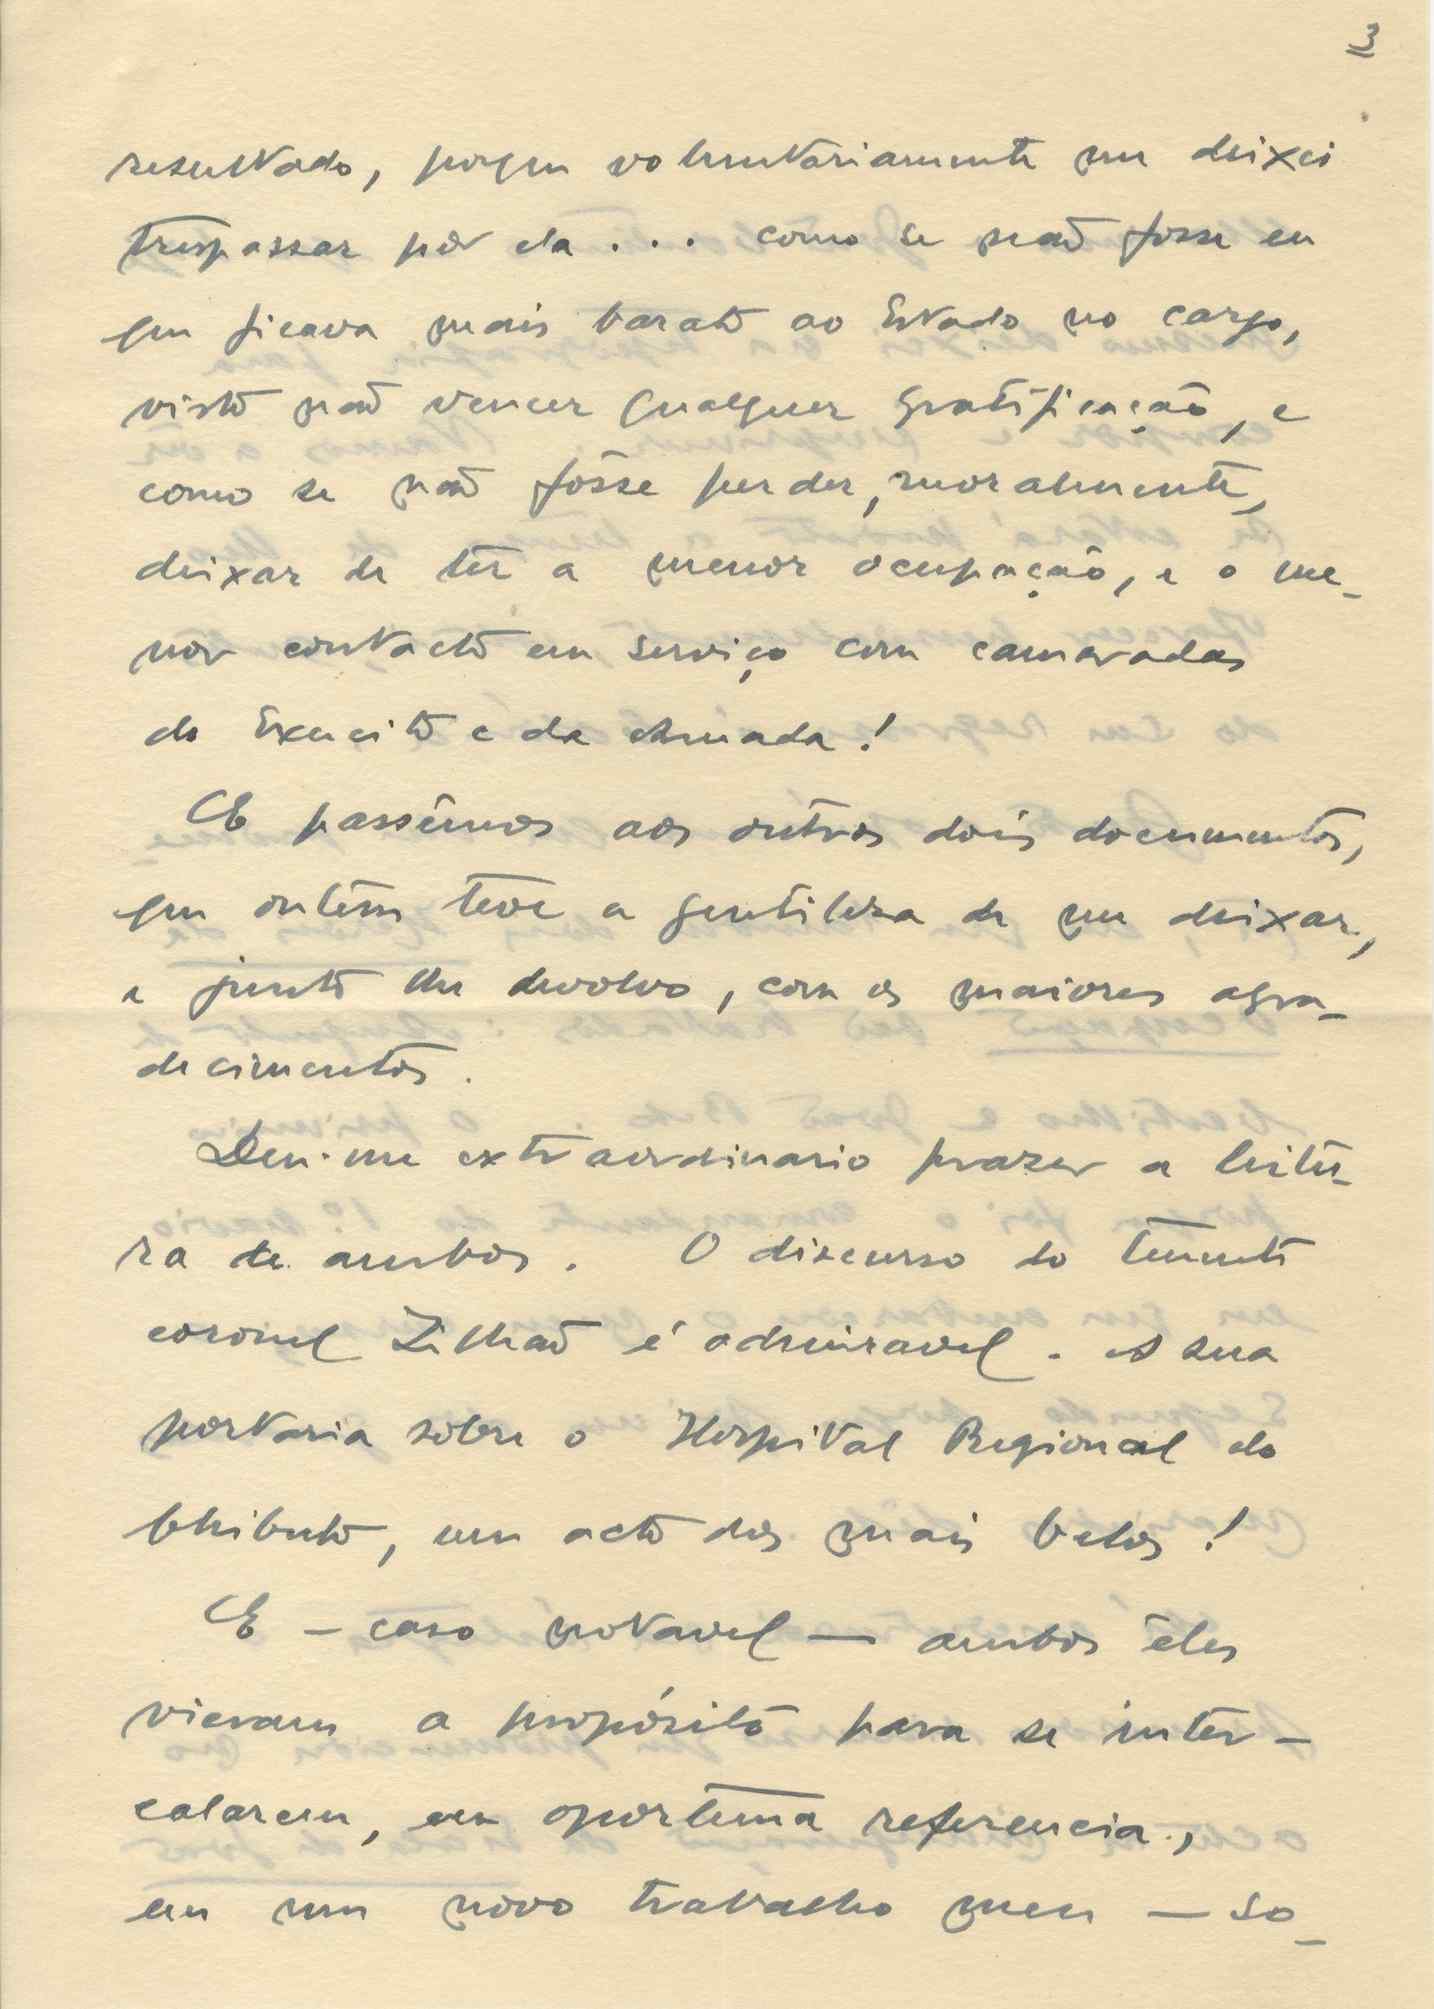 3
resultado, porque voluntáriamente me deixei
trespassar por ela... como se não fosse eu
que ficava mais barato ao Estado no cargo,
visto não vencer qualquer gratificação, e
como se não fôsse perder, moralmente,
deixar de ter a menor ocupação, e o me-
nor contacto em serviço com camaradas
do Exercito e da Armada!
E passêmos aos outros dois documentos,
que ontem teve a gentileza de me deixar,
e junto lhe devolvo, com os maiores agra-
decimentos.
Deu-me extraordinario prazer a leitu-
ra de ambos. O discurso do tenente
coronel Zilhão é admiravel. A sua
portaria sôbre o Hospital Regional do
Chibuto, um acto dos mais belos!
E — caso notavel — ambos êles
vieram a propósito para se inter-
calarem, em oportuna referencia,
em um novo trabalho meu — so-